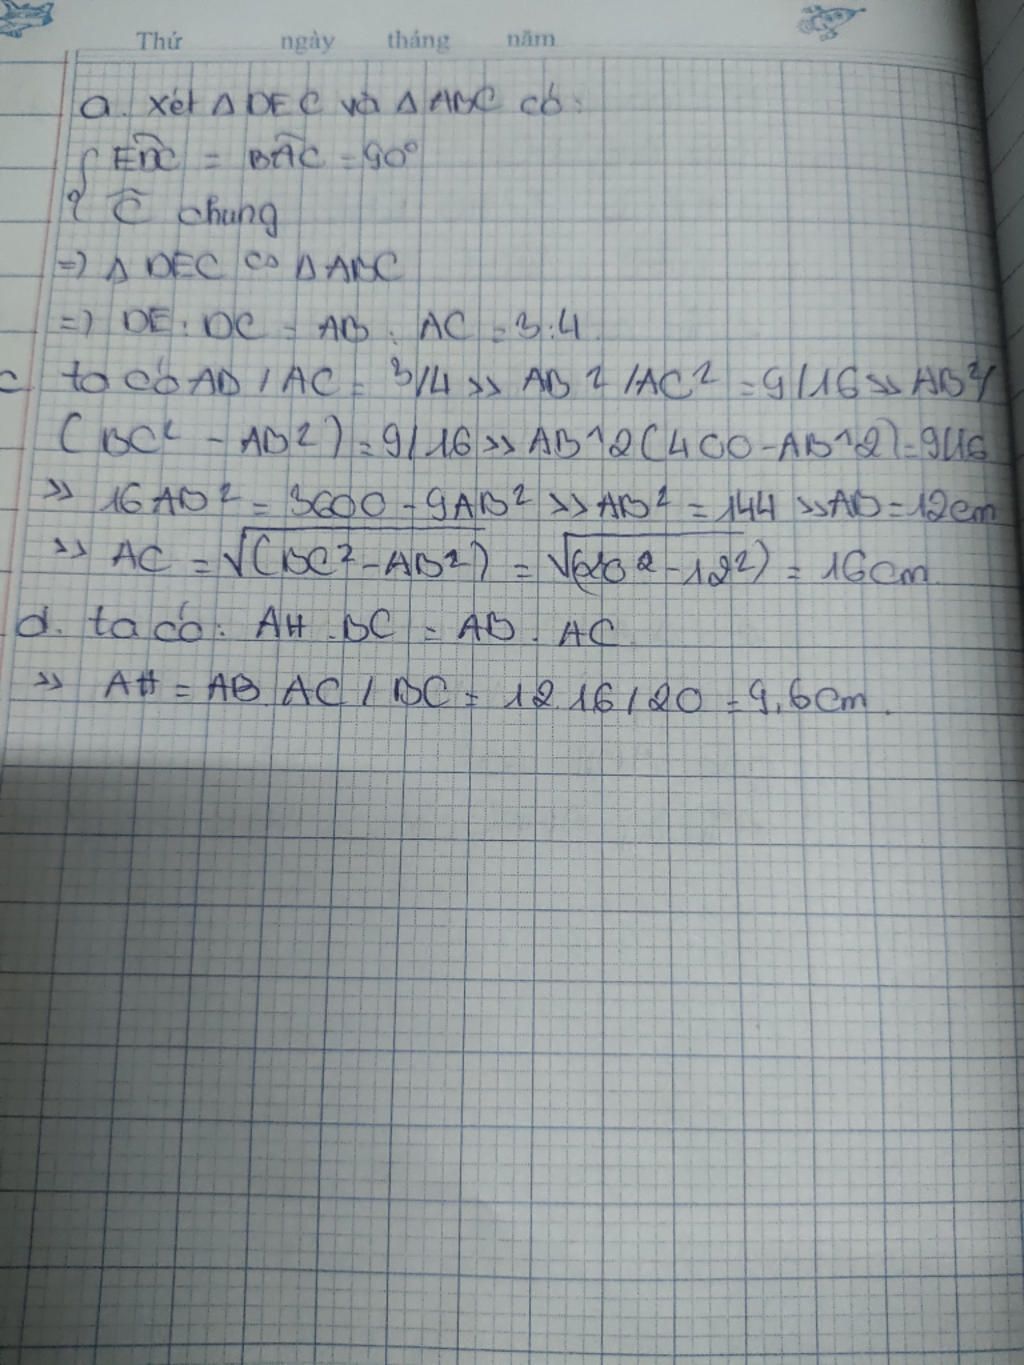 Thứ ngày tháng năm
a. xét Δ DEC và Δ ABC có:
{ EDC = BAC = 90°
Ĉ chung
=> Δ DEC ∽ Δ ABC
=> DE : DC = AB : AC = 3:4.
c. ta có AB / AC = 3/4 >> AB² / AC² = 9/16 >> AB² /
(BC² - AB²) = 9/16 >> AB^2 (400 - AB^2) = 9/16
>> 16AB² = 3600 - 9AB² >> AB² = 144 >> AB = 12cm
>> AC = √(BC² - AB²) = √(20² - 12²) = 16cm.
d. ta có: AH . BC = AB . AC.
>> AH = AB.AC / BC = 12.16 / 20 = 9,6cm.